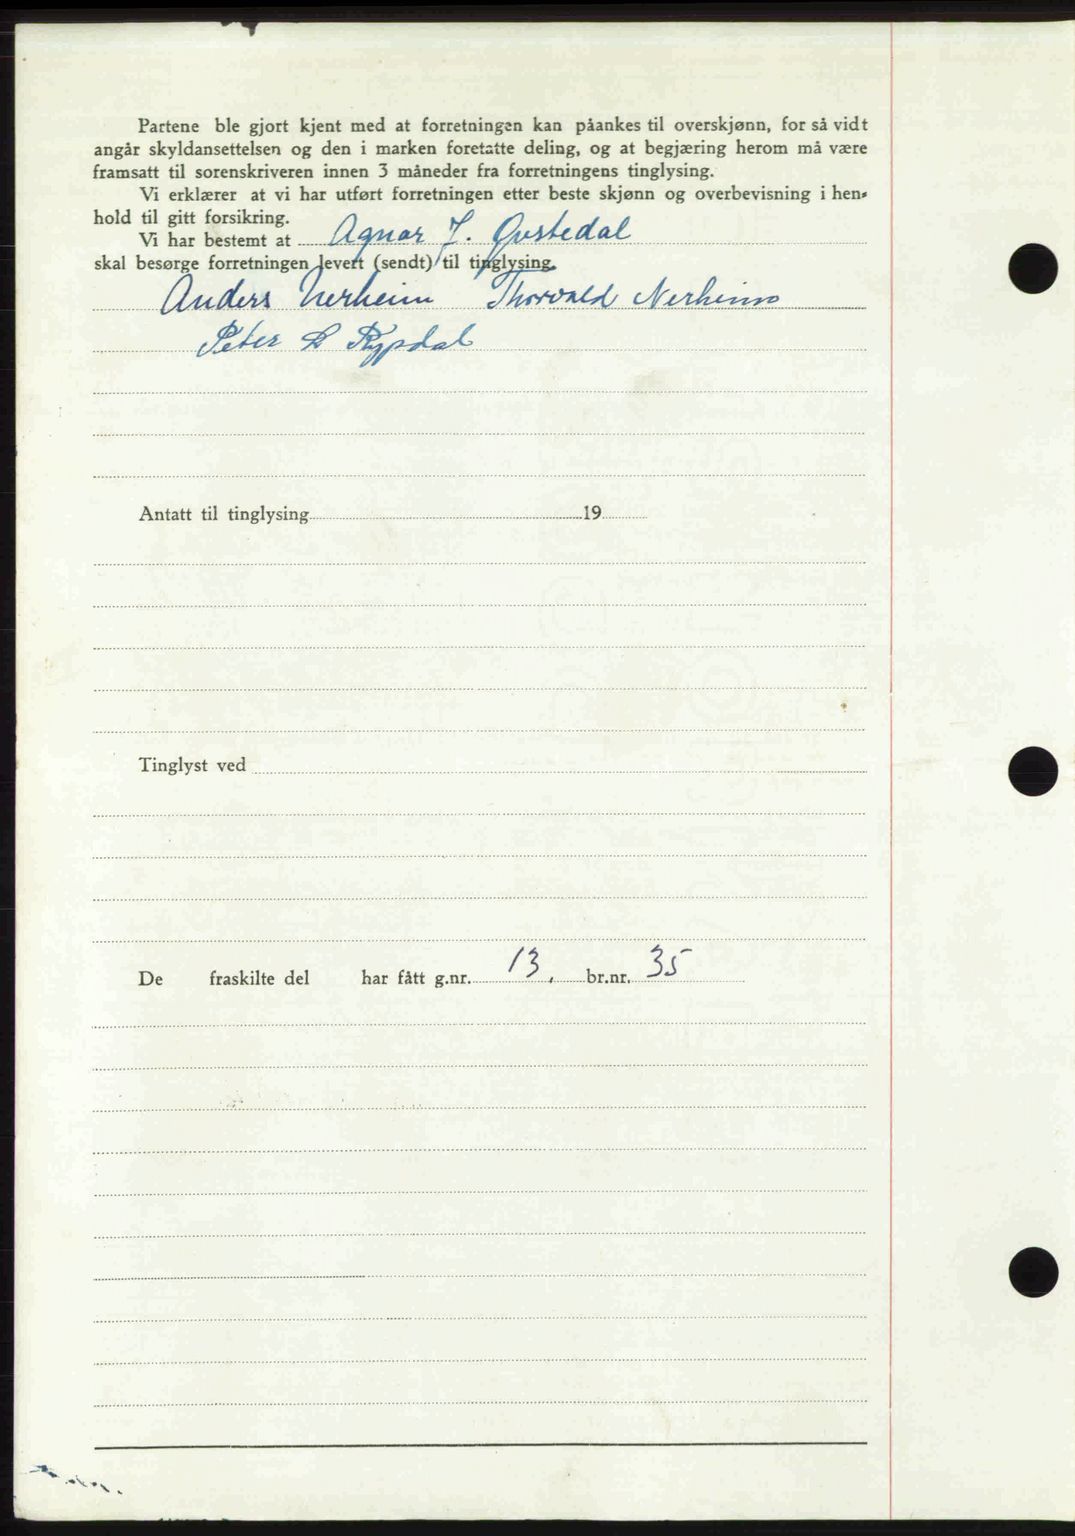 Partene ble gjort kjent med at forretningen kan påankes til overskjønn, for så vidt
angår skyldansettelsen og den i marken foretatte deling, og at begjæring herom må være
framsatt til sorenskriveren innen 3 måneder fra forretningens tinglysing.
Vi erklærer at vi har utført forretningen etter beste skjønn og overbevisning i hen-
hold til gitt forsikring.
Vi har bestemt at Agnar J. Øvstedal
skal besørge forretningen levert (sendt) til tinglysing.
Anders Nerheim Thorvald Nerheim
Peter L Rypdal
Antatt til tinglysing 19
Tinglyst ved
De fraskilte del har fått g.nr. 13, br.nr. 35